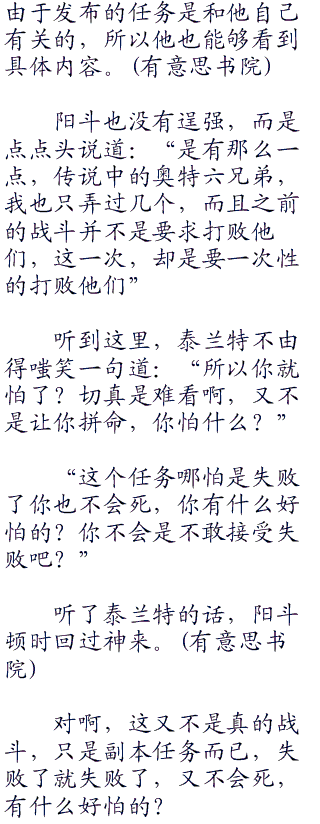 由于发布的任务是和他自己
有关的，所以他也能够看到
具体内容。(有意思书院)
阳斗也没有逞强，而是
点点头说道：“是有那么一
点，传说中的奥特六兄弟，
我也只弄过几个，而且之前
的战斗并不是要求打败他
们，这一次，却是要一次性
的打败他们”
听到这里，泰兰特不由
得嗤笑一句道：“所以你就
怕了？切真是难看啊，又不
是让你拼命，你怕什么？”
“这个任务哪怕是失败
了你也不会死，你有什么好
怕的？你不会是不敢接受失
败吧？”
听了泰兰特的话，阳斗
顿时回过神来。(有意思书
院)
对啊，这又不是真的战
斗，只是副本任务而已，失
败了就失败了，又不会死，
有什么好怕的？